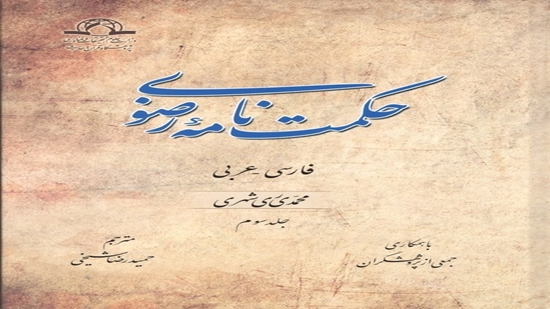 حکمت نامهٔ رضوی
فارسی - عربی
محمدی ری شهری
جلد سوم
با همکاری
جمعی از پژوهشگران
مترجم
حمیدرضا شیخی